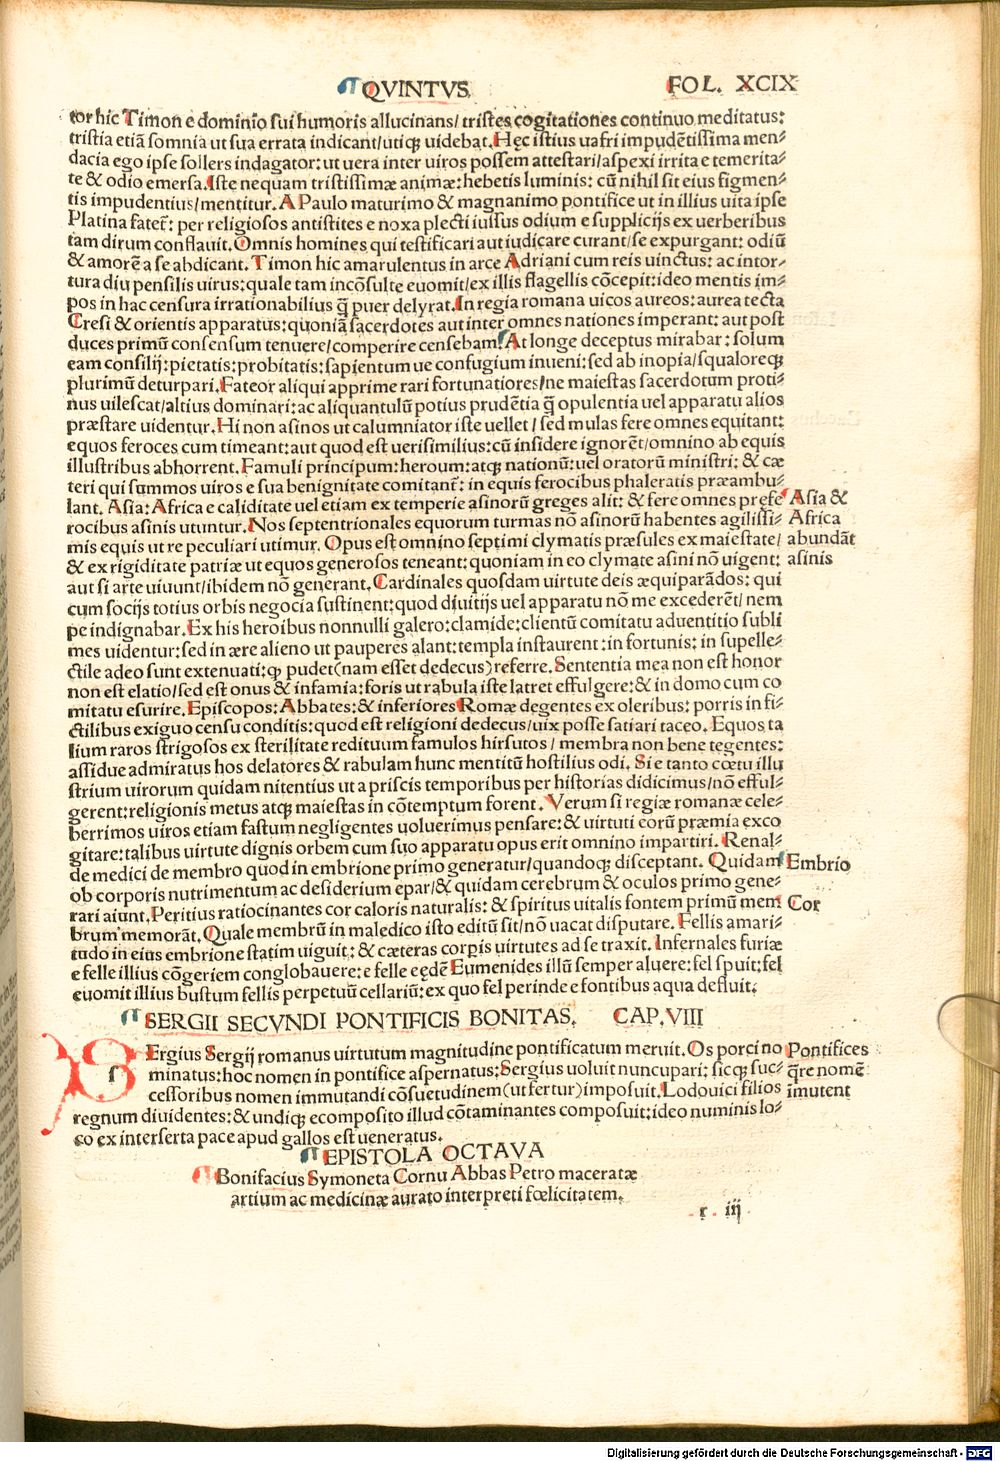 QVINTVS FOL. XCIX
tor hic Timon e dominio sui humoris allucinans/ tristes cogitationes continuo meditatus:
tristia etiã somnia ut sua errata indicant/utiqꝫ uidebat. Hęc istius uafri impudẽtissima men⸗
dacia ego ipse sollers indagator: ut uera inter uiros possem attestari/aspexi irrita e temerita⸗
te & odio emersa. Iste nequam tristissimæ animæ: hebetis luminis: cũ nihil sit eius figmen⸗
tis impudentius/mentitur. A Paulo maturimo & magnanimo pontifice ut in illius uita ipse
Platina fatet̃: per religiosos antistites e noxa plecti iussus odium e supplicijs ex uerberibus
tam dirum conflauit. Omnis homines qui testificari aut iudicare curant/se expurgant: odiũ
& amorẽ a se abdicant. Timon hic amarulentus in arce Adriani cum reis uinctus: ac intor⸗
tura diu pensilis uirus: quale tam incõsulte euomit/ex illis flagellis cõcepit: ideo mentis im⸗
pos in hac censura irrationabilius q̃ puer delyrat. In regia romana uicos aureos: aurea tecta
Cresi & orientis apparatus: quoniã sacerdotes aut inter omnes nationes imperant: aut post
duces primũ consensum tenuere/comperire censebam. At longe deceptus mirabar: solum
eam consilij: pietatis: probitatis: sapientum ue confugium inueni: sed ab inopia/squaloreqꝫ
plurimũ deturpari. Fateor aliqui apprime rari fortunatiores/ne maiestas sacerdotum proti⸗
nus uilescat/altius dominari: ac aliquantulũ potius prudẽtia q̃ opulentia uel apparatu alios
præstare uidentur. Hi non asinos ut calumniator iste uellet / sed mulas fere omnes equitant:
equos feroces cum timeant: aut quod est uerisimilius: cũ insidere ignorẽt/omnino ab equis
illustribus abhorrent. Famuli principum: heroum: atqꝫ nationũ: uel oratorũ ministri: & cæ
teri qui summos uiros e sua benignitate comitant̃: in equis ferocibus phaleratis præambu⸗
lant. Asia: Africa e caliditate uel etiam ex temperie asinorũ greges alit: & fere omnes pręfe Asia &
rocibus asinis utuntur. Nos septentrionales equorum turmas nõ asinorũ habentes agilissi⸗ Africa
mis equis ut re peculiari utimur. Opus est omnino septimi clymatis præsules ex maiestate/ abundãt
& ex rigiditate patriæ ut equos generosos teneant: quoniam in eo clymate asini nõ uigent: asinis
aut si arte uiuunt/ibidem nõ generant. Cardinales quosdam uirtute deis æquiparãdos: qui
cum socijs totius orbis negocia sustinent: quod diuitijs uel apparatu nõ me excederẽt/ nem
pe indignabar. Ex his heroibus nonnulli galero: clamide: clientũ comitatu aduentitio subli
mes uidentur: sed in ære alieno ut pauperes alant: templa instaurent: in fortunis: in supelle⸗
ctile adeo sunt extenuati: qꝫ pudet(nam esset dedecus)referre. Sententia mea non est honor
non est elatio/sed est onus & infamia: foris ut rabula iste latret effulgere: & in domo cum co
mitatu esurire. Episcopos: Abbates: & inferiores Romæ degentes ex oleribus: porris in fi⸗
ctilibus exiguo censu conditis: quod est religioni dedecus/uix posse satiari taceo. Equos ta
lium raros strigosos ex sterilitate redituum famulos hirsutos / membra non bene tegentes:
assidue admiratus hos delatores & rabulam hunc mentitũ hostilius odi. Si e tanto cœtu illu
strium uirorum quidam nitentius ut a priscis temporibus per historias didicimus/nõ efful⸗
gerent: religionis metus atqꝫ maiestas in cõtemptum forent. Verum si regiæ romanæ cele⸗
berrimos uiros etiam fastum negligentes uoluerimus pensare: & uirtuti eorũ præmia exco
gitare: talibus uirtute dignis orbem cum suo apparatu opus erit omnino impartiri. Renal⸗
de medici de membro quod in embrione primo generatur/quandoqꝫ disceptant. Quidam Embrio
ob corporis nutrimentum ac desiderium epar/& quidam cerebrum & oculos primo gene⸗
rari aiunt. Peritius ratiocinantes cor caloris naturalis: & spiritus uitalis fontem primũ mem Cor
brum memorãt. Quale membrũ in maledico isto editũ sit/nõ uacat disputare. Fellis amari⸗
tudo in eius embrione statim uiguit: & cæteras corpis uirtutes ad se traxit. Infernales furiæ
e felle illius cõgeriem conglobauere: e felle eędẽ Eumenides illũ semper aluere: fel spuit: fel
euomit illius bustum fellis perpetuũ cellariũ: ex quo fel perinde e fontibus aqua defluit.
SERGII SECVNDI PONTIFICIS BONITAS. CAP. VIII
SErgius Sergij romanus uirtutum magnitudine pontificatum meruit. Os porci no Pontifices
minatus: hoc nomen in pontifice aspernatus: Sergius uoluit nuncupari: sicqꝫ suc⸗ q̃re nomẽ
cessoribus nomen immutandi cõsuetudinem(ut fertur)imposuit. Lodouici filios imutent
regnum diuidentes: & undiqꝫ ecomposito illud cõtaminantes composuit: ideo numinis lo⸗
co ex interserta pace apud gallos est ueneratus.
EPISTOLA OCTAVA
Bonifacius Symoneta Cornu Abbas Petro maceratæ
artium ac medicinæ aurato interpreti fœlicitatem.
r iij
Digitalisierung gefördert durch die Deutsche Forschungsgemeinschaft - DFG